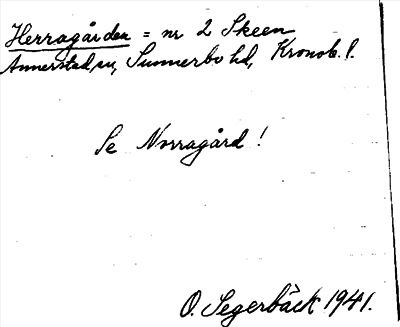 Herragården = nr 2 Skeen
Annerstad sn, Sunnerbo hd, Kronob. l.
Se Norragård!
O. Segerbäck 1941.